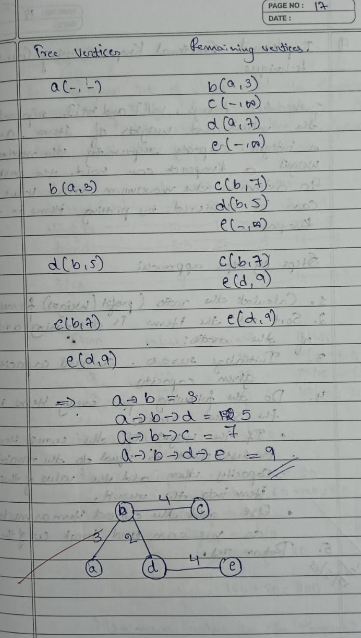 PAGE NO: 17
DATE:
Tree Vertices Remaining vertices.
a(-,-) b(a,3)
c(-,∞)
d(a,7)
e(-,∞)
b(a,3) c(b,7)
d(b,5)
e(-,∞)
d(b,5) c(b,7)
e(d,9)
c(b,7) e(d,9)
e(d,9)
=> a→b = 3
a→b→d = 5
a→b→c = 7
a→b→d→e = 9
b 4 c
3 2
a d 4 e